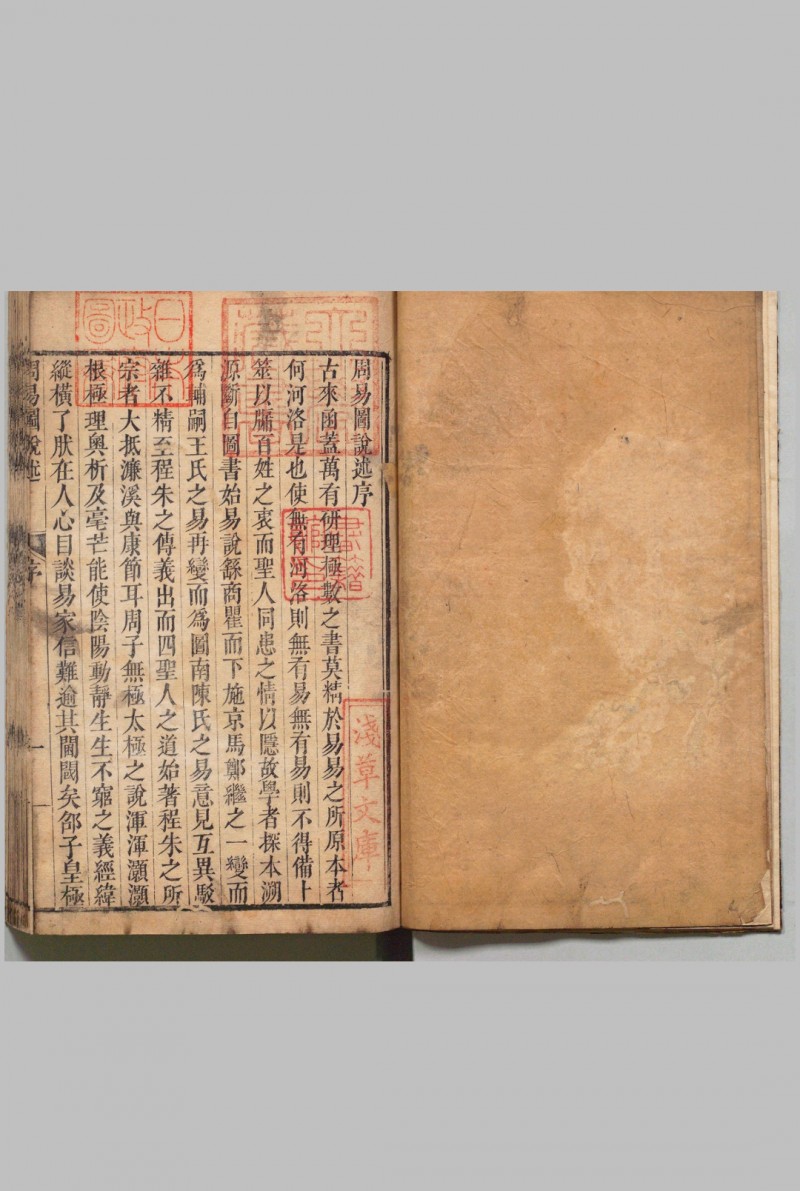 周易圖說述序
古來函蓋萬有研理極數之書莫精於易易之所原本者
何河洛是也使無有河洛則無有易無有易則不得備卜
筮以牖百姓之衷而聖人同患之情以隱故學者探本溯
源斷自圖書始易說繇商瞿而下施京馬鄭繼之一變而
爲輔嗣王氏之易再變而爲圖南陳氏之易意見互異駁
雜不精至程朱之傳義出而四聖人之道始著程朱之所
宗者大抵濂溪與康節耳周子無極太極之說渾渾灝灝
根極理奧析及毫芒能使陰陽動靜生生不窮之義經緯
縱橫了肰在人心目談易家信難逾其閫閾矣邵子皇極
周易圖說述
序
一
日本政府圖書
書籍館印
淺草文庫